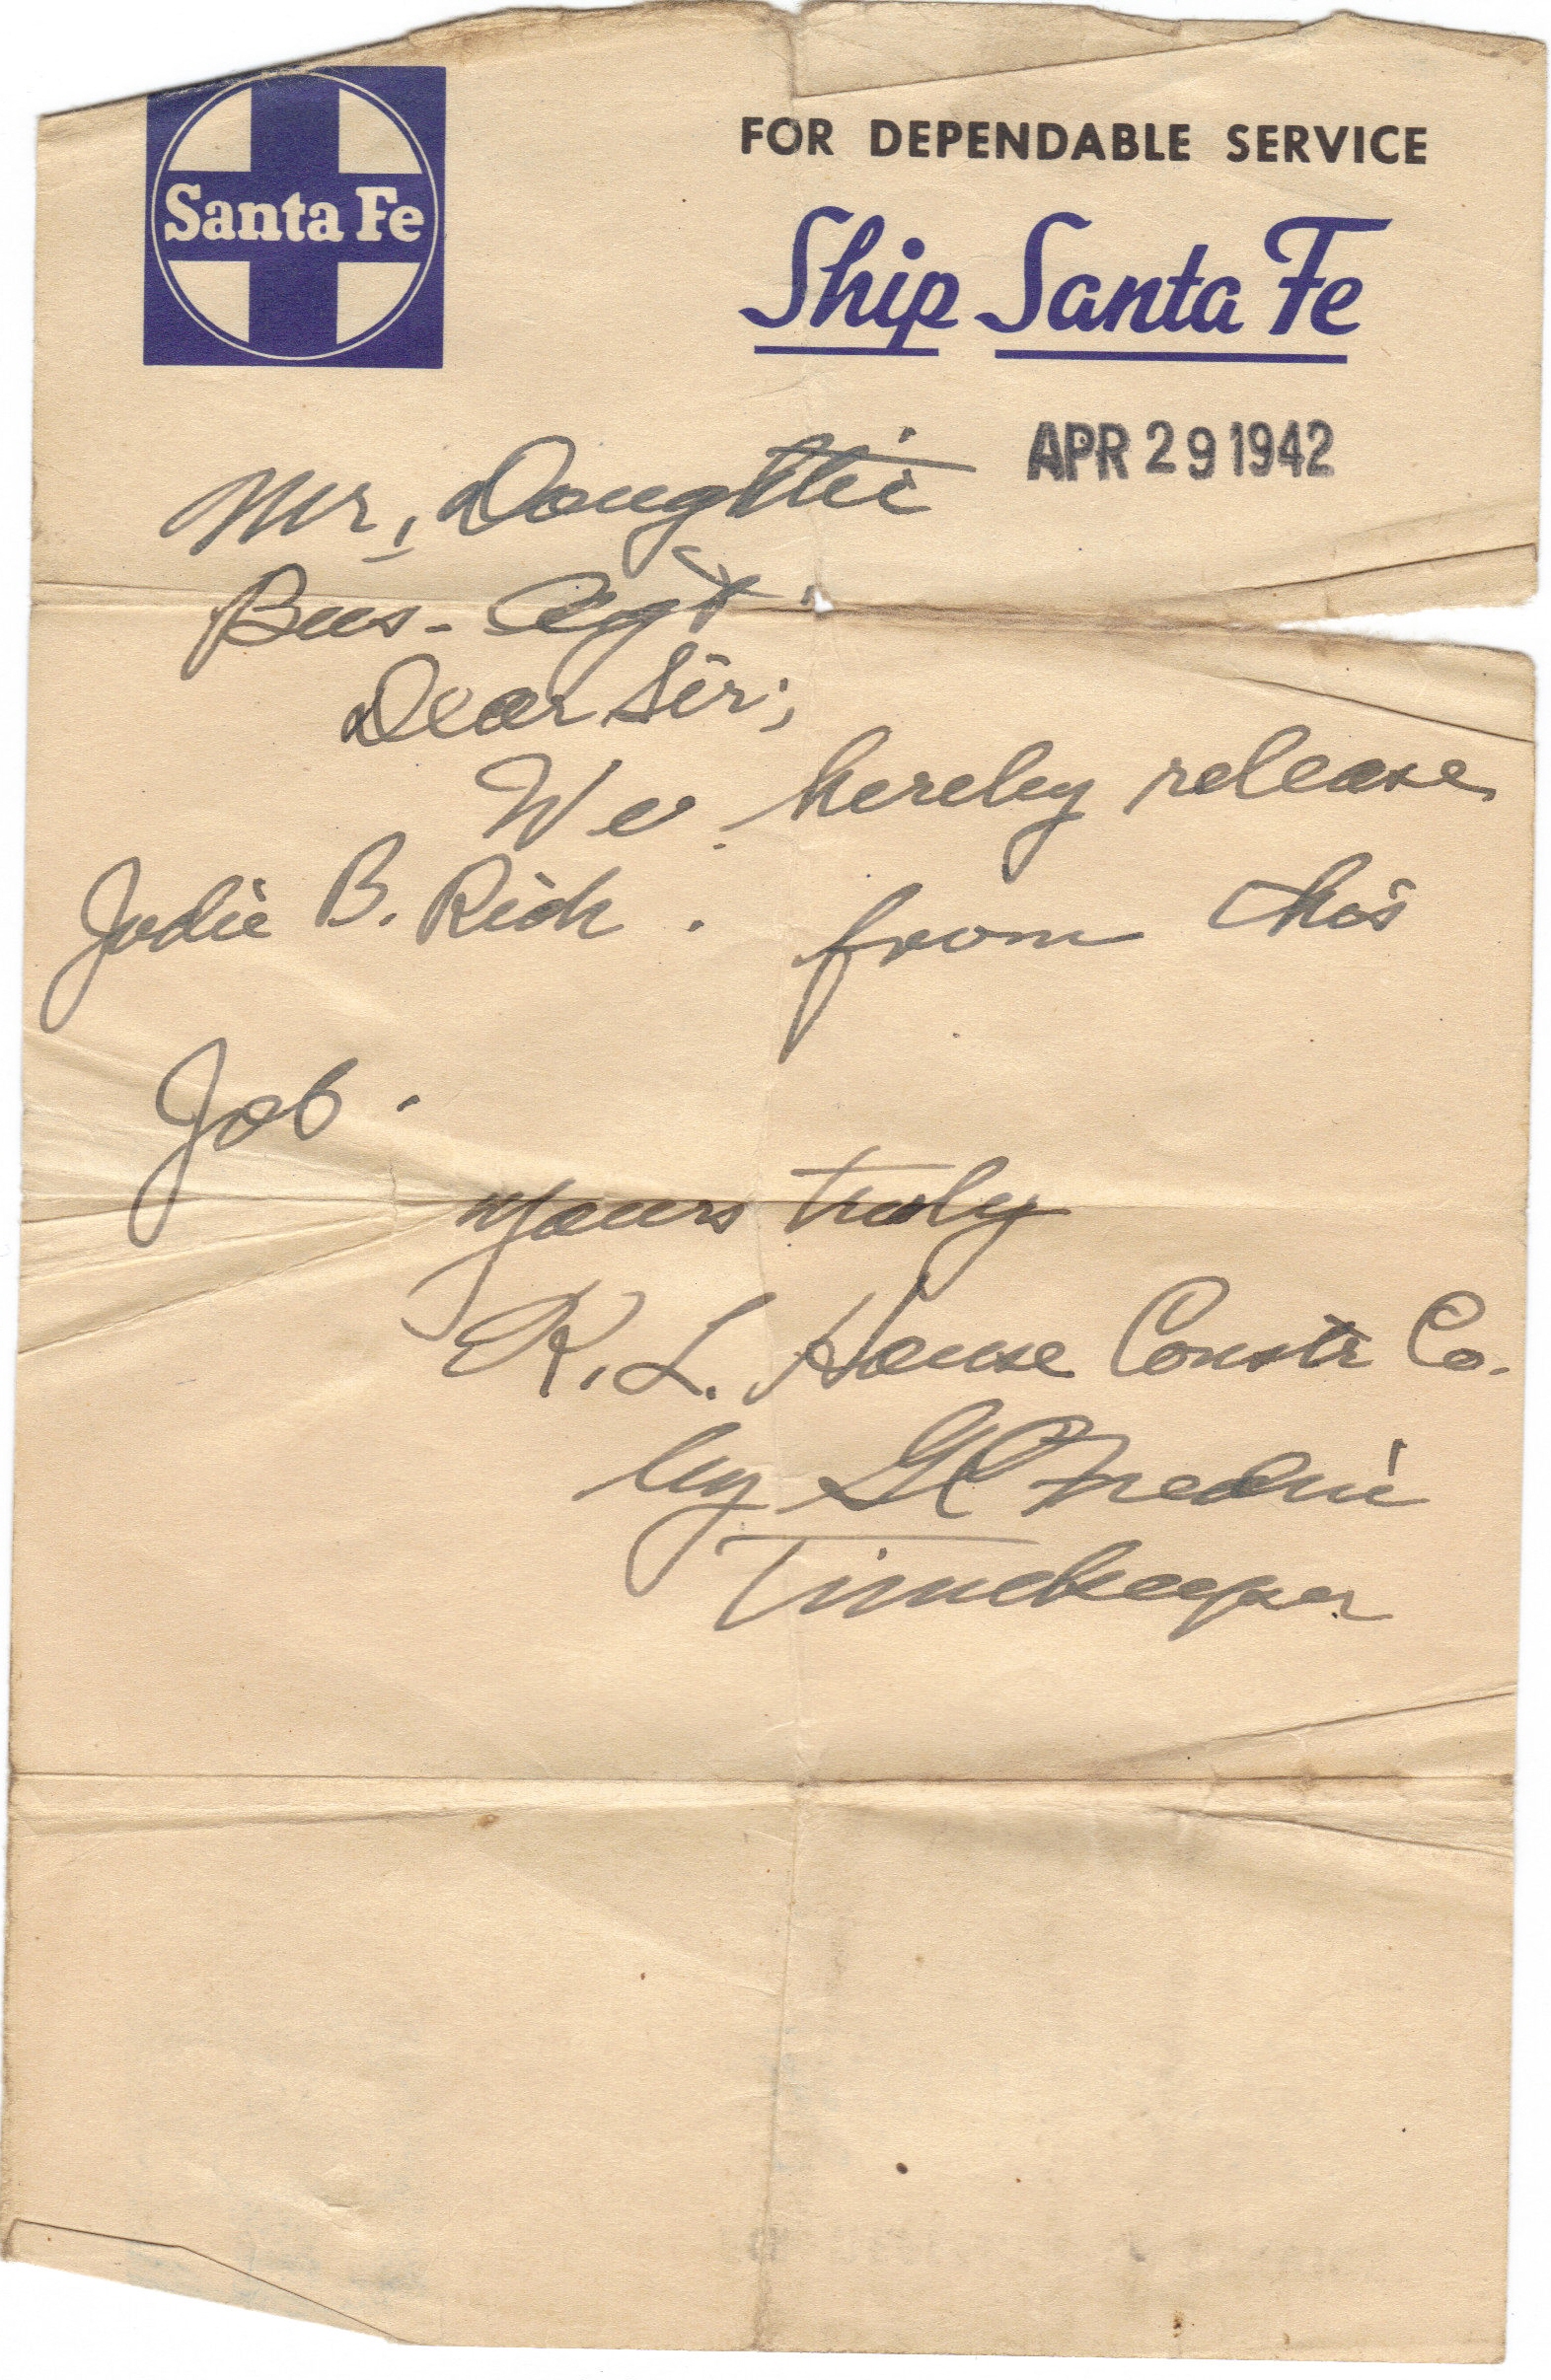 Santa Fe
FOR DEPENDABLE SERVICE
Ship Santa Fe
APR 29 1942
Mr,
Bus - Agt.
Dear Sir;
We hereby release
Jodie B. Rich. from this
Job.
Yours truly
R. L. House Constr Co.
by
Timekeeper